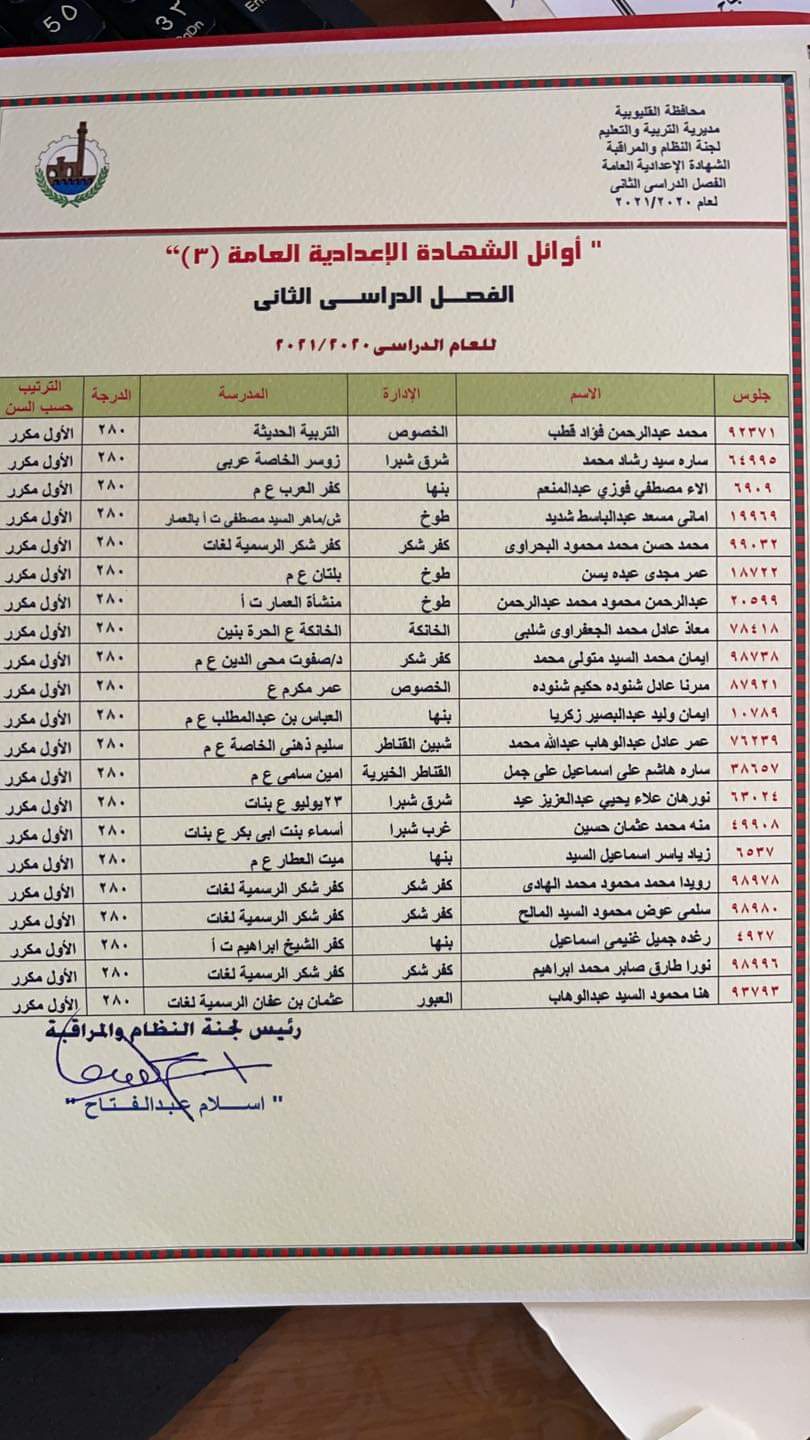 محافظة القليوبية
مديرية التربية والتعليم
لجنة النظام والمراقبة
الشهادة الإعدادية العامة
الفصل الدراسى الثانى
لعام ٢٠٢١/٢٠٢٠
" أوائل الشهادة الإعدادية العامة (٣)"
الفصل الدراسى الثانى
للعام الدراسى ٢٠٢١/٢٠٢٠
جلوس الاسم الإدارة المدرسة الدرجة الترتيب حسب السن
٩٢٣٧١ محمد عبدالرحمن فؤاد قطب الخصوص التربية الحديثة ٢٨٠ الأول مكرر
٦٤٩٩٥ ساره سيد رشاد محمد شرق شبرا زوسر الخاصة عربى ٢٨٠ الأول مكرر
٦٩٠٩ الاء مصطفي فوزي عبدالمنعم بنها كفر العرب ع م ٢٨٠ الأول مكرر
١٩٩٦٩ امانى مسعد عبدالباسط شديد طوخ ش/ماهر السيد مصطفى ت أ بالعمار ٢٨٠ الأول مكرر
٩٩٠٣٢ محمد حسن محمد محمود البحراوى كفر شكر كفر شكر الرسمية لغات ٢٨٠ الأول مكرر
١٨٧٢٢ عمر مجدى عبده يسن طوخ بلتان ع م ٢٨٠ الأول مكرر
٢٠٥٩٩ عبدالرحمن محمود محمد عبدالرحمن طوخ منشأة العمار ت أ ٢٨٠ الأول مكرر
٧٨٤١٨ معاذ عادل محمد الجعفراوى شلبى الخانكة الخانكة ع الحرة بنين ٢٨٠ الأول مكرر
٩٨٧٣٨ ايمان محمد السيد متولى محمد كفر شكر د/صفوت محى الدين ع م ٢٨٠ الأول مكرر
٨٧٩٢١ مرنا عادل شنوده حكيم شنوده الخصوص عمر مكرم ع ٢٨٠ الأول مكرر
١٠٧٨٩ ايمان وليد عبدالبصير زكريا بنها العباس بن عبدالمطلب ع م ٢٨٠ الأول مكرر
٧٦٢٣٩ عمر عادل عبدالوهاب عبدالله محمد شبين القناطر سليم ذهنى الخاصة ع م ٢٨٠ الأول مكرر
٣٨٦٥٧ ساره هاشم على اسماعيل على جمل القناطر الخيرية امين سامى ع م ٢٨٠ الأول مكرر
٦٣٠٢٤ نورهان علاء يحيي عبدالعزيز عيد شرق شبرا ٢٣يوليو ع بنات ٢٨٠ الأول مكرر
٤٩٩٠٨ منه محمد عثمان حسين غرب شبرا أسماء بنت ابى بكر ع بنات ٢٨٠ الأول مكرر
٦٥٣٧ زياد ياسر اسماعيل السيد بنها ميت العطار ع م ٢٨٠ الأول مكرر
٩٨٩٧٨ رويدا محمد محمود محمد الهادى كفر شكر كفر شكر الرسمية لغات ٢٨٠ الأول مكرر
٩٨٩٨٠ سلمى عوض محمود السيد المالح كفر شكر كفر شكر الرسمية لغات ٢٨٠ الأول مكرر
٤٩٢٧ رغده جميل غنيمى اسماعيل بنها كفر الشيخ ابراهيم ت أ ٢٨٠ الأول مكرر
٩٨٩٩٦ نورا طارق صابر محمد ابراهيم كفر شكر كفر شكر الرسمية لغات ٢٨٠ الأول مكرر
٩٣٧٩٣ هنا محمود السيد عبدالوهاب العبور عثمان بن عفان الرسمية لغات ٢٨٠ الأول مكرر
رئيس لجنة النظام والمراقبة
" اسلام عبدالفتاح "